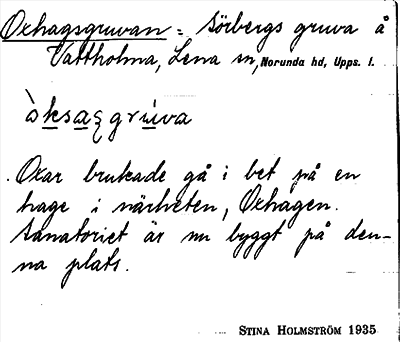 Oxhagsgruvan = Sörbergs gruva å
Vattholma, Lena sn, Norunda hd, Upps. l.
òksaʒgrúva
Oxar brukade gå i bet på en
hage i närheten, Oxhagen.
Sanatoriet är nu byggt på den-
na plats.
STINA HOLMSTRÖM 1935